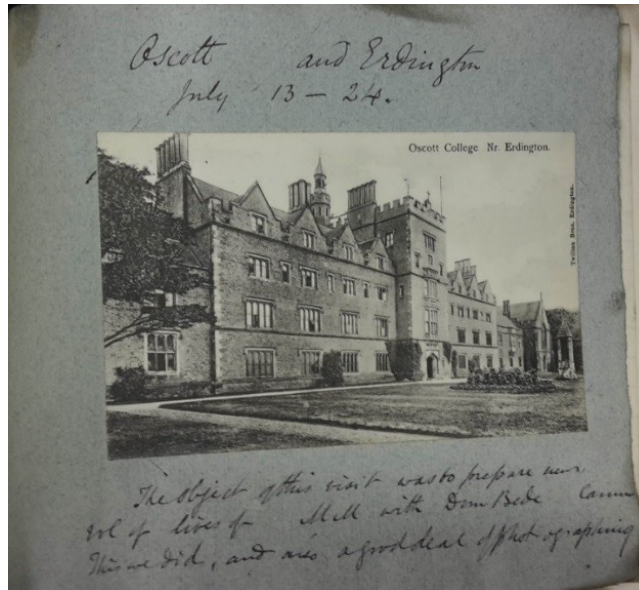 Oscott and Erdington
July 13 – 24.
Oscott College Nr. Erdington.
Twilton Bros. Erdington.
The object of this visit was to prepare new
vol of lives of MM with Dom Bede Camm
This we did, and also a good deal of photographing